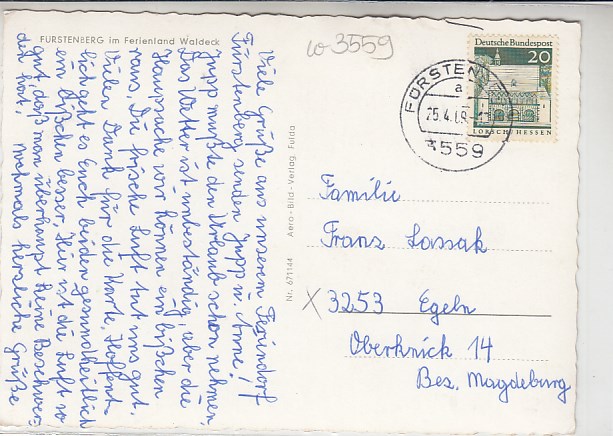 FÜRSTENBERG im Ferienland Waldeck
Viele Grüße aus unserem Feriendorf
Fürstenberg senden Jupp u. Anne!
Jupp mußte den Urlaub schon nehmen.
Das Wetter ist unbeständig, aber die
Hauptsache wir können ein bißchen
raus. Die frische Luft tut uns gut.
Vielen Dank für die Karte, Hoffent-
lich geht es Euch beiden gesundheitlich
ein bißchen besser, Hier ist die Luft so
gut, daß man überhaupt keine Beschwer-
den hat, nochmals herzliche Grüße
Nr. 671144 Aero-Bild-Verlag, Fulda
w 3559
Deutsche Bundespost
20
LORSCH/HESSEN
FÜRSTEN
a
25.4.68
3559
Familie
Franz Lossak
X 3253 Egeln
Oberknick 14
Bez. Magdeburg